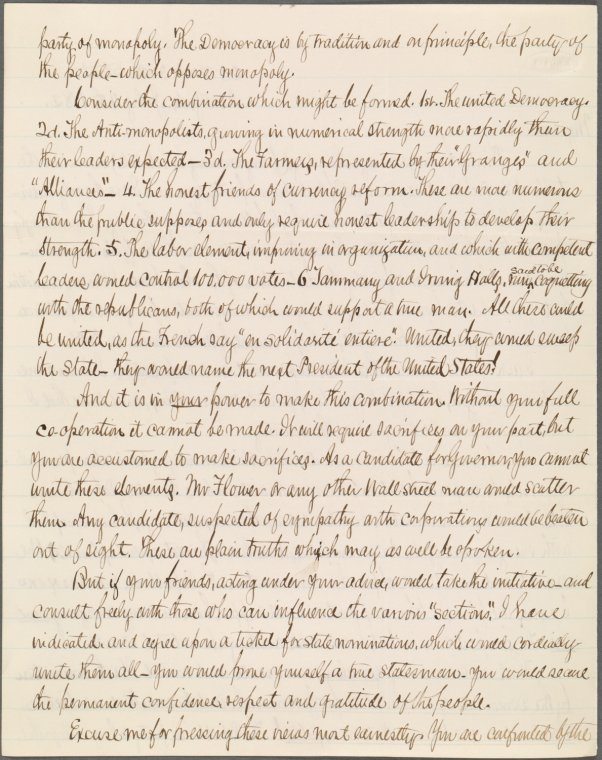 party of monopoly. The Democracy is by tradition and on principle, the party of
the people - which opposes monopoly.
Consider the combination which might be formed. 1st. The united Democracy.
2d. The Anti-monopolists, growing in numerical strength more rapidly than
their leaders expected - 3d. The Farmers, represented by their "Granges" and
"Alliances" - 4. The honest friends of currency reform. These are more numerous
than the public supposes and only require honest leadership to develop their
strength. 5. The labor element, improving in organization, and which with competent
leaders, would control 100,000 votes - 6 Tammany and Irving Halls, said to be
coquetting
with the republicans, both of which would support a true man. All these could
be united, as the French say "en solidarité entiere". United, they could sweep
the State - they would name the next President of the United States!
And it is in your power to make this combination. Without your full
co-operation it cannot be made. It will require sacrifices on your part, but
you are accustomed to make sacrifices. As a candidate for Governor, you cannot
unite these elements. Mr Flower or any other Wall street man would scatter
them. Any candidate, suspected of sympathy with corporations would be beaten
out of sight. These are plain truths which may as well be spoken.
But if your friends, acting under your advice, would take the initiative - and
consult freely with those who can influence the various "sections", I have
indicated, and agree upon a ticket for state nominations, which would cordially
unite them all - you would prove yourself a true statesman - you would secure
the permanent confidence, respect and gratitude of the people.
Excuse me for pressing these views most earnestly. You are confronted by the